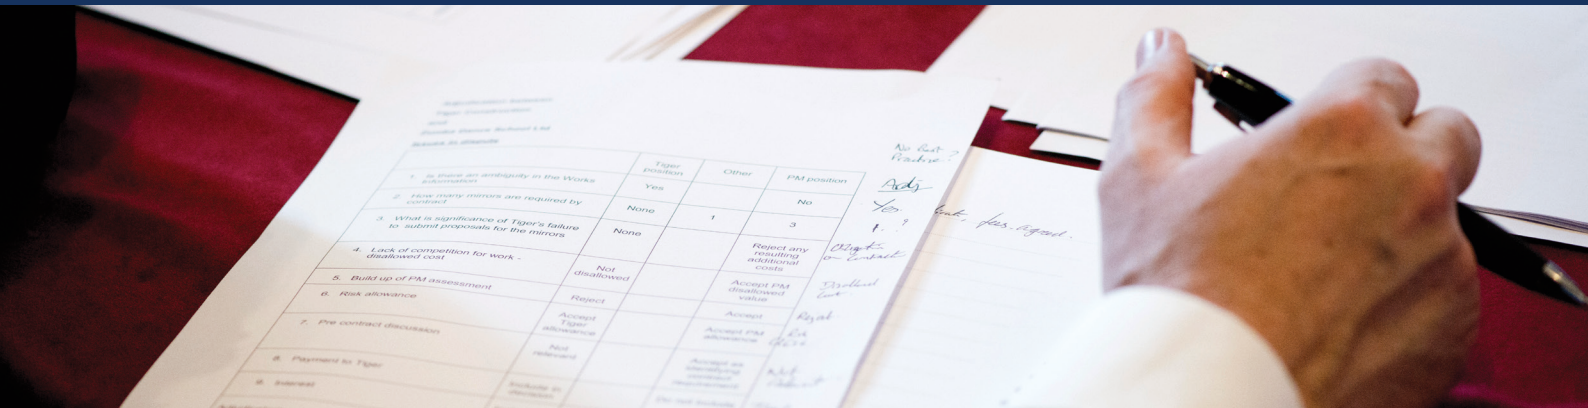 Adjudication between
Tiger Construction
and
School Ltd
Issues in dispute
Tiger position Other PM position
1. Is there an ambiguity in the Works information Yes No
2. How many mirrors are required by contract None 1 3
3. What is significance of Tiger's failure to submit proposals for the mirrors None Reject any resulting additional costs
4. Lack of competition for work - disallowed cost Not disallowed Accept PM disallowed value
5. Build up of PM assessment Reject Accept
6. Risk allowance Accept Tiger allowance Accept PM allowance
7. Pre contract discussion Not relevant Accept as identifying contract requirement
8. Payment to Tiger Include in decision Do not include
9. Interest
No best
Practice ?
Adj
Yes
1. ?
Reject
Not
fees agreed.